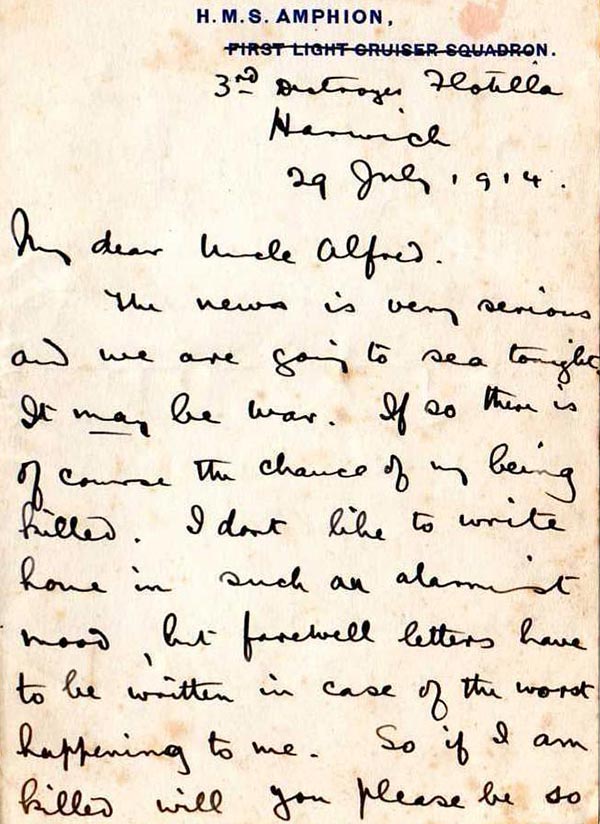 H.M.S. AMPHION,
FIRST LIGHT CRUISER SQUADRON.
3rd Destroyer Flotilla
Harwich
29 July 1914.
My dear Uncle Alfred.
The news is very serious
and we are going to sea tonight.
It may be war. If so there is
of course the chance of my being
killed. I dont like to write
home in such an alarmist
mood, but farewell letters have
to be written in case of the worst
happening to me. So if I am
killed will you please be so